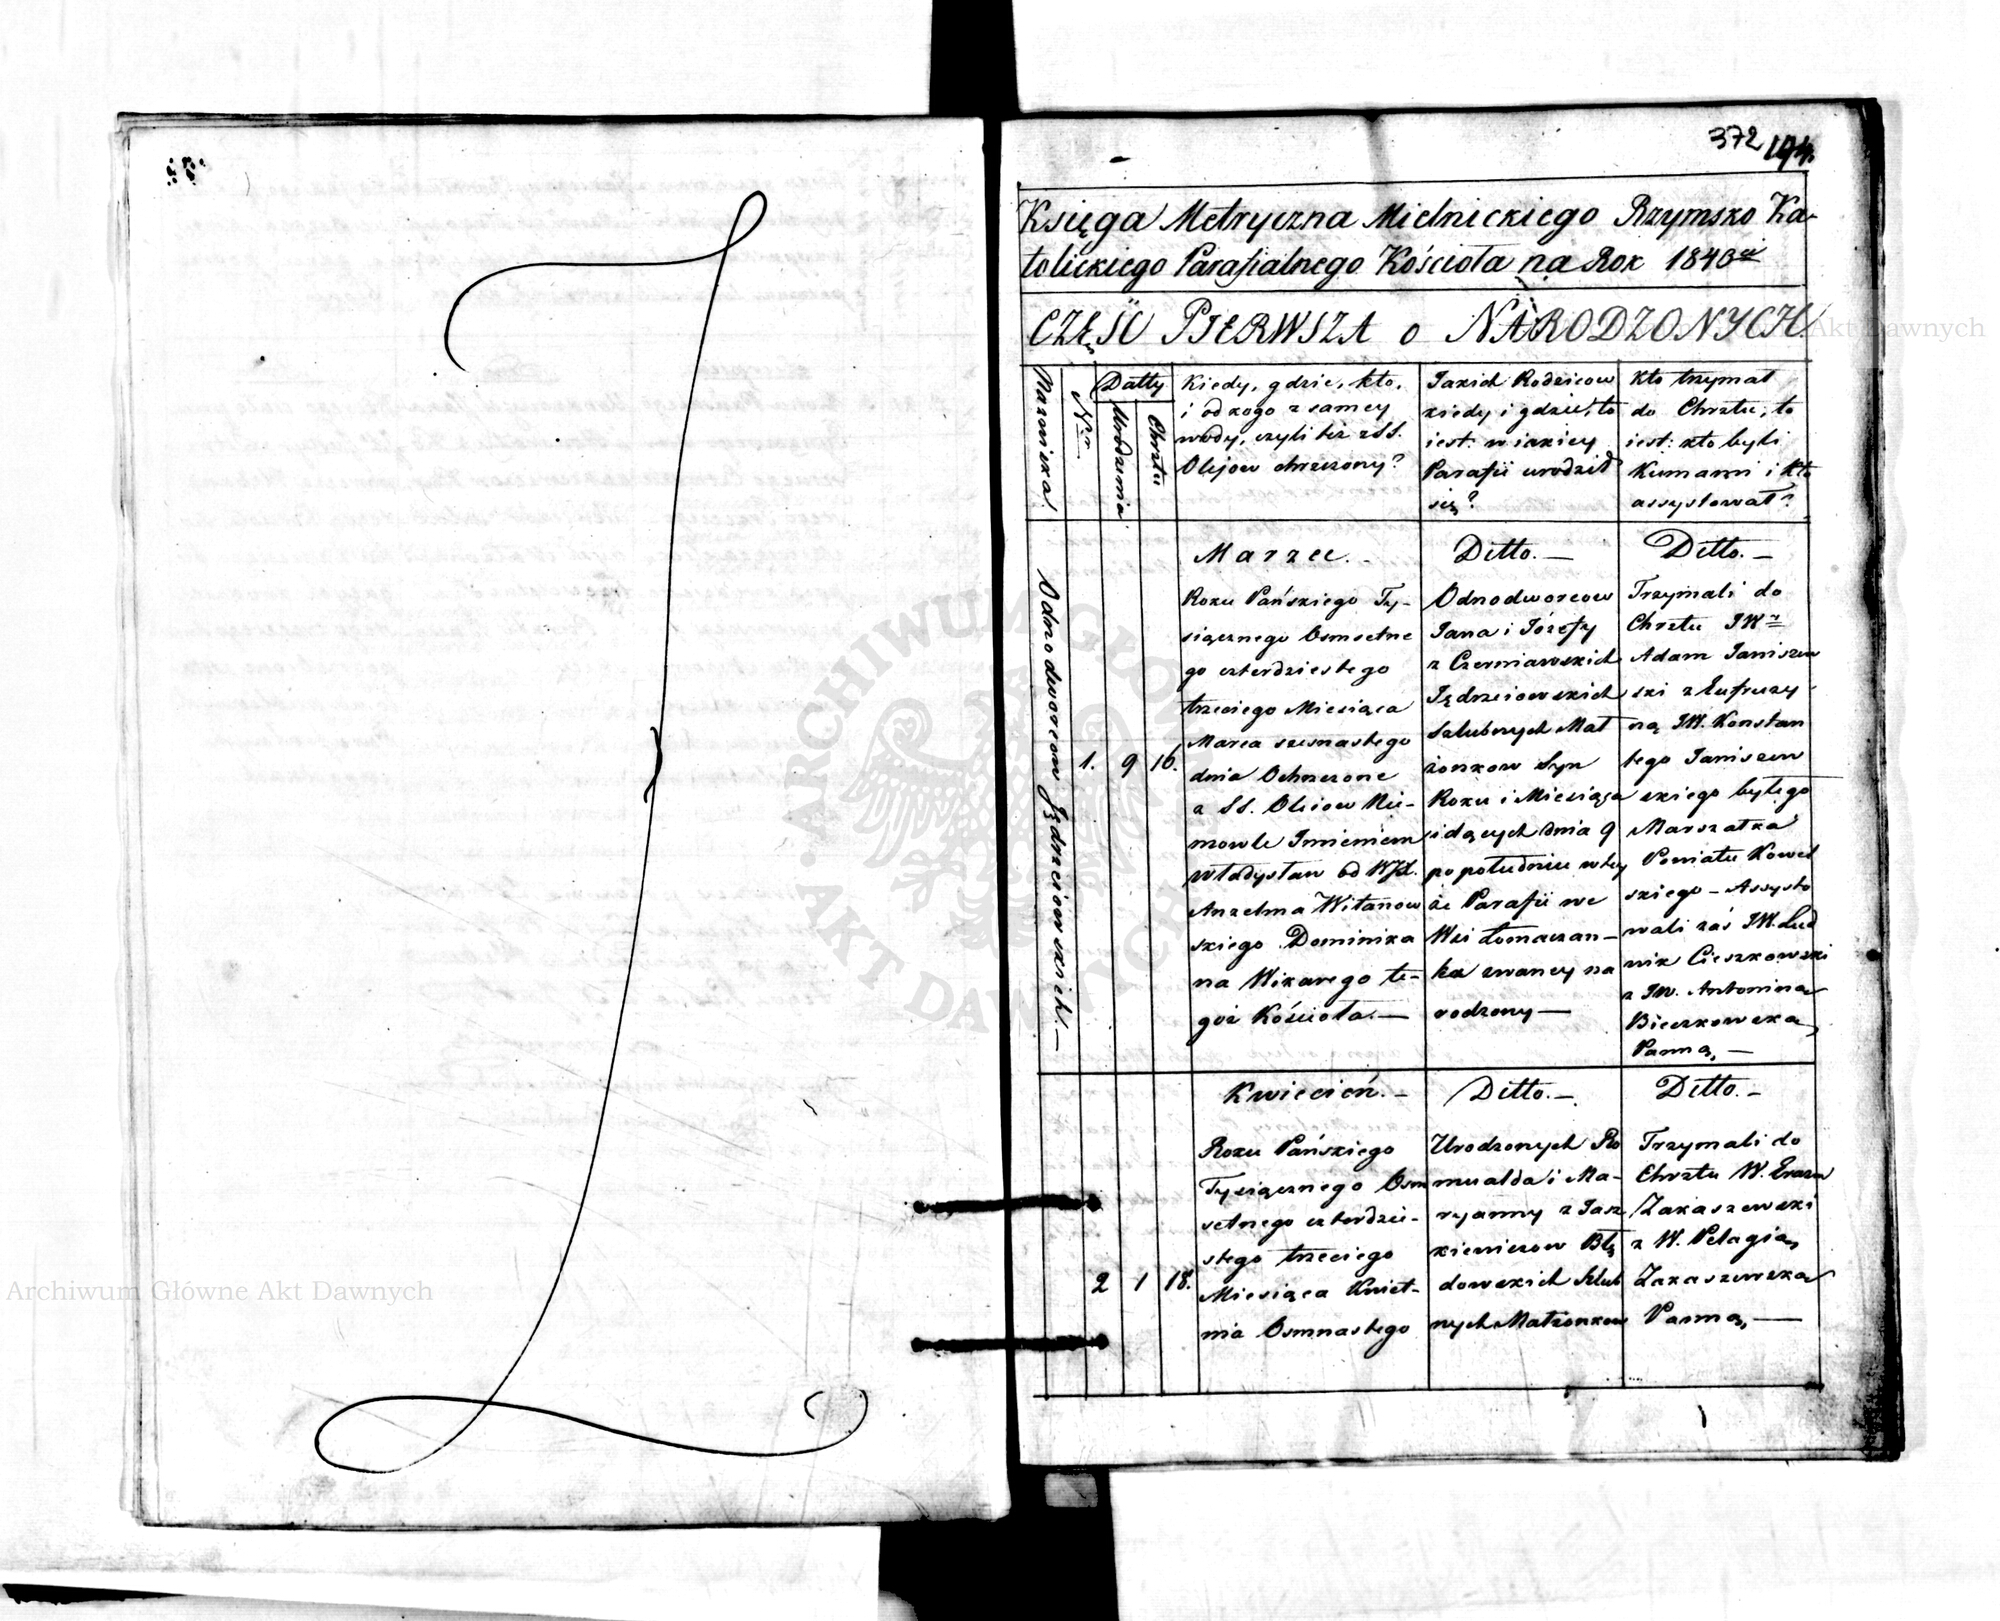 372 194.
Księga Metryczna Mielnickiego Rzymsko Ka-
tolickiego Parafialnego Kościoła na Rok 1843
CZĘŚĆ PIERWSZA o NARODZONYCH.
Nazwiska
Nr.
Datty
Urodzenia
Chrztu
Kiedy, gdzie, kto,
i od kogo z samey
wody, czyli też z SS.
Olejow chrzczony?
Jakich Rodzicow
kiedy i gdzie, to
iest: w iakiey
Parafii urodził
się?
Kto trzymał
do Chrztu, to
iest: kto byli
Kumami i kto
assystował?
Odnodworcow Jędrzeiowskich.—
1.
9
16.
Marzec.-
Roku Pańskiego Ty-
siącznego Osmsetne
go czterdziestego
trzeciego Miesiąca
Marca szesnastego
dnia Ochrzczone
z SS. Oleiow Nie-
mowle Imieniem
Władysław od WJX.
Anzelma Witanow
skiego Dominika
na Wikarego te-
goż Kościoła.—
Ditto.—
Odnodworcow
Jana i Józefy
z Czerniawskich
Jędrzeiowskich
Szlubnych Mał
żonkow Syn
Roku i Miesiąca
idących dnia 9
po południu w tey
że Parafii we
Wsi Łomaczan-
ka zwaney na
rodzony—
Ditto.—
Trzymali do
Chrztu JW
Adam Janiszew
ski z Eufrozy
ną JW. Konstan
tego Janiszew
skiego byłego
Marszałka
Powiatu Kowel
skiego - Assysto
wali zaś JW. Lud
wik Cieszkowski
z JW. Antonina
Bieczkowska
Panną,—
2
1
18.
Kwiecień.-
Roku Pańskiego
Tysiącznego Osm
setnego czterdzie-
stego trzeciego
Miesiąca Kwiet-
nia Osmnastego
Ditto.—
Urodzonych Ro
mualda i Ma-
ryanny z Jasz
kiewiczow Błę
dowskich Szlub
nych Małżonkow
Ditto.-
Trzymali do
Chrztu W. Erazm
Zakaszewski
z W. Pelagią
Zakaszewska
Panną,—
Archiwum Główne Akt Dawnych
Akt Dawnych
ARCHIWUM GŁÓWNE
AKT DAWNYCH